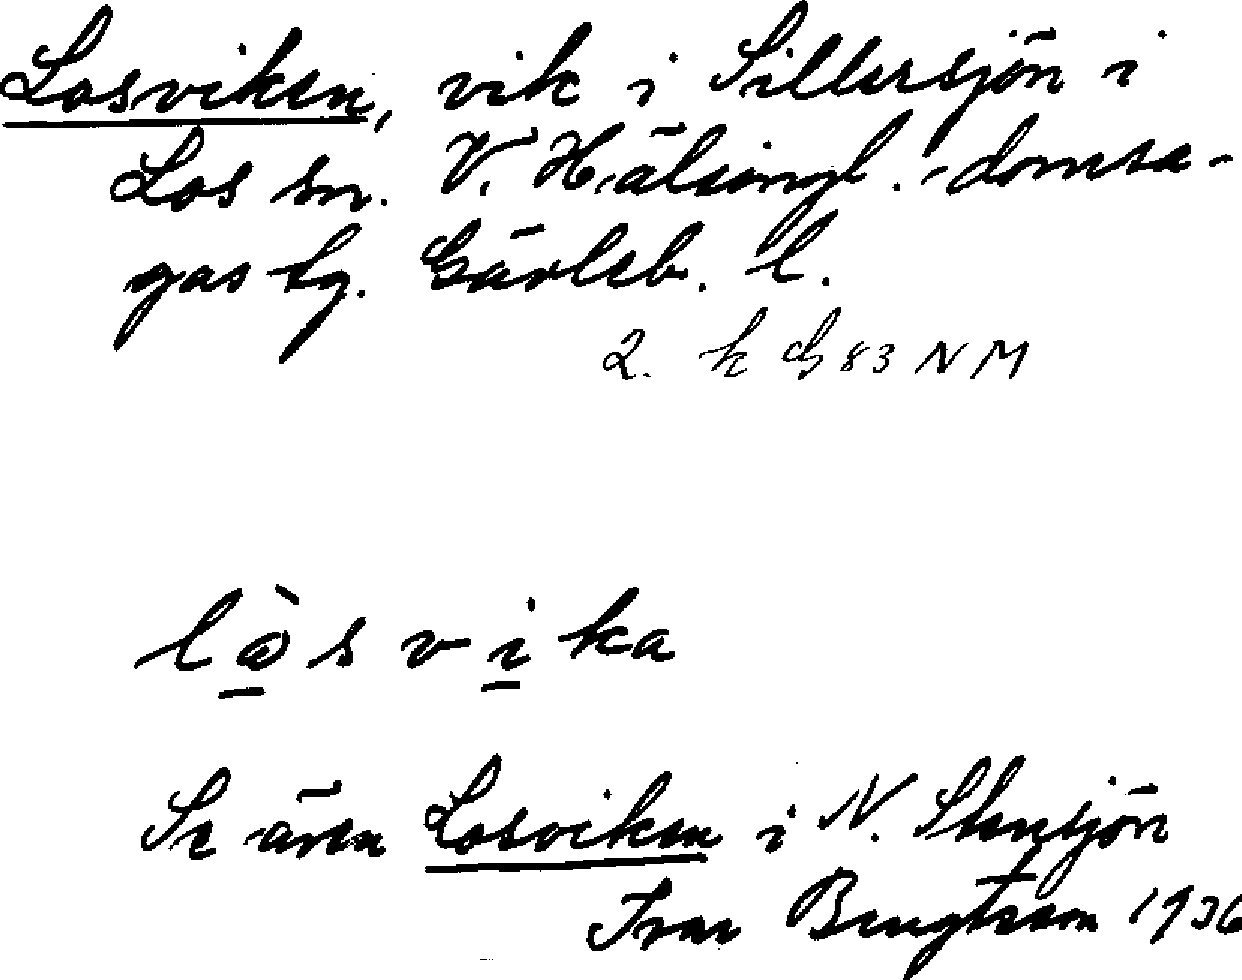 Losviken, vik i Sillersjön i
Los sn. V. Hälsingl. domsa-
gas tg. Gävleb. l.
2. k 83 NM
lòsvika
Se även Losviken i N. Stensjön
Ivar Bengtsson 1936